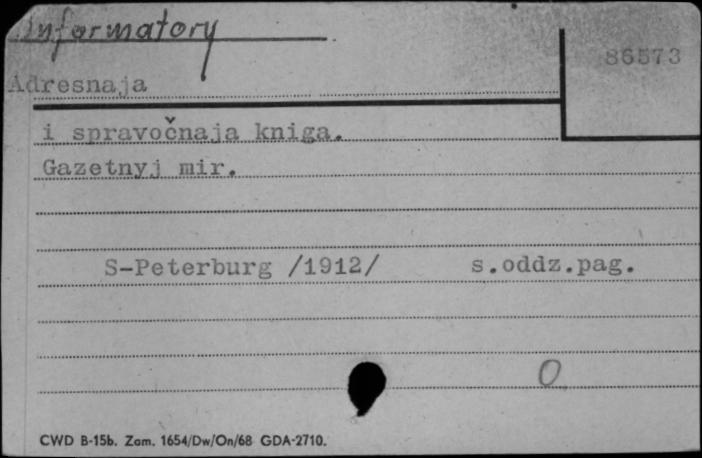 Informatory
86573
Adresnaja
i spravočnaja kniga.
Gazetnyj mir.
S-Peterburg /1912/ s.oddz.pag.
O
CWD B-15b. Zam. 1654/Dw/On/68 GDA-2710.